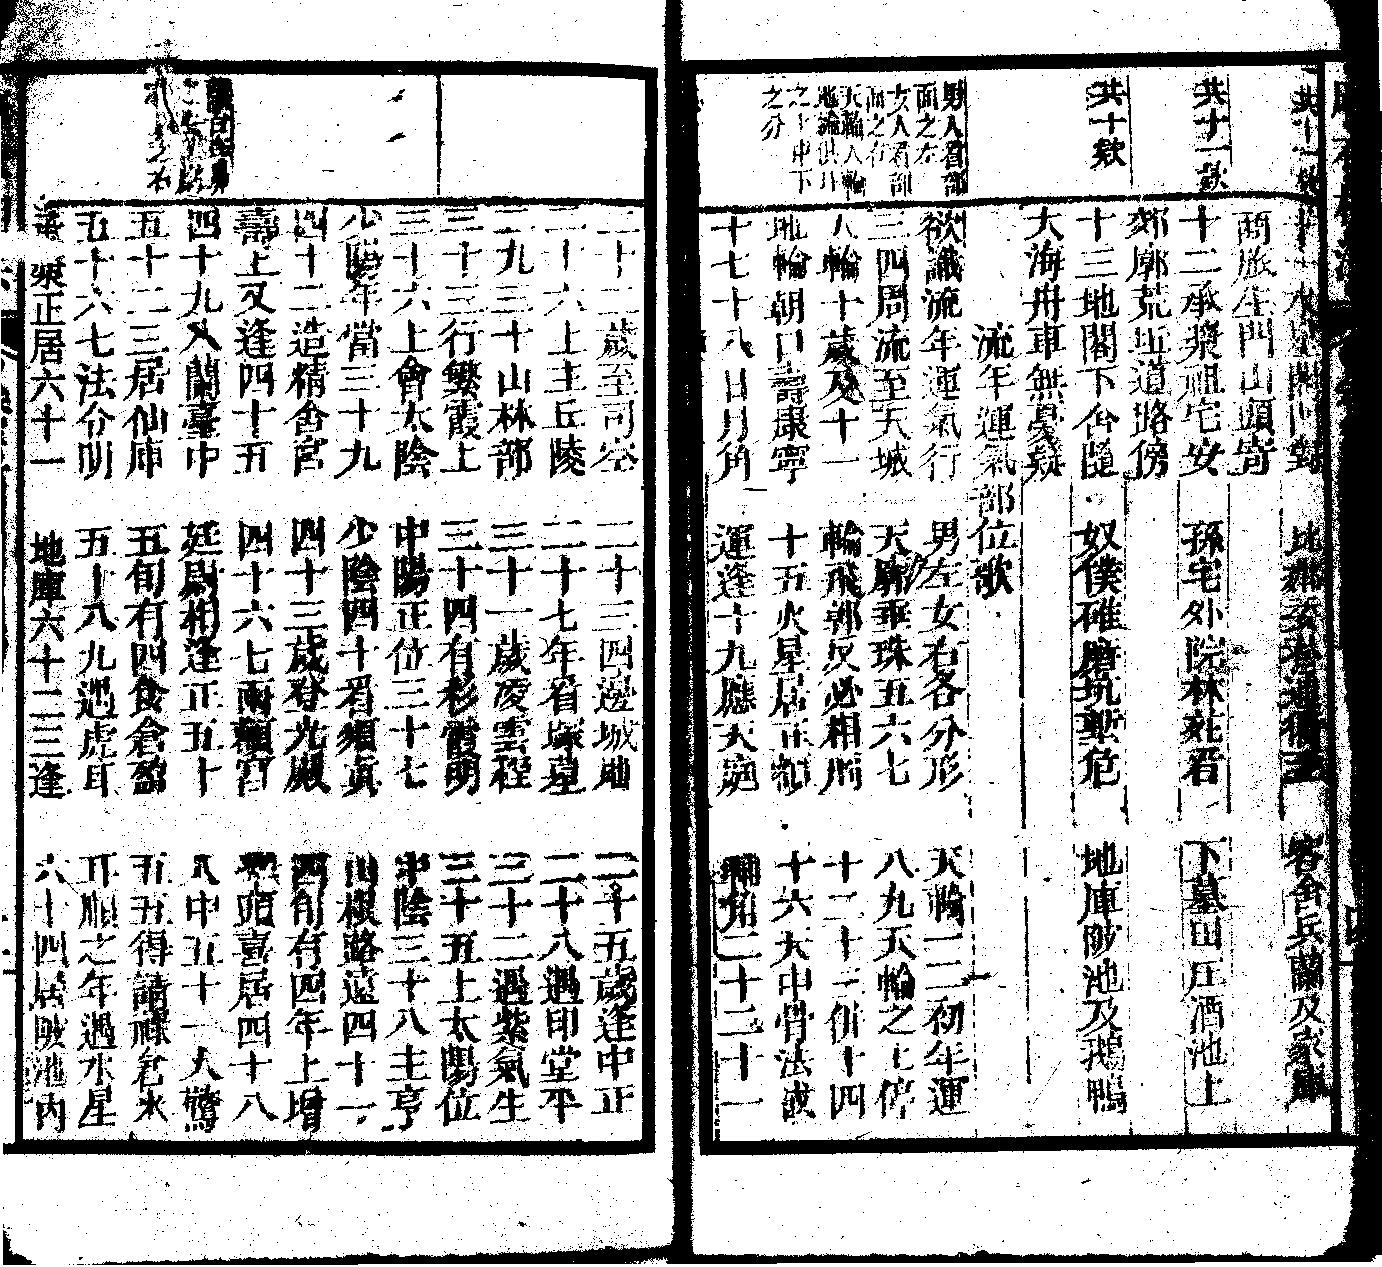 共十一款
十一水星閣門對
北鄰委巷通衢至
客舍兵蘭及家庫
商旅生門山頭寄
共十一款
十二承漿祖宅安
孫宅外院林苑看
下墓田庄酒池上
郊廓荒坵道路傍
共十款
十三地閣下舍隨
奴僕碓磨坑塹危
地庫陂池及鵝鴨
大海舟車無憂疑
流年運氣部位歌
男人看部
面之左
女人看部
面之右
欲識流年運氣行
男左女右各分形
天輪一二初年運
三四周流至天城
天廓垂珠五六七
八九天輪之上停
天輪人輪
地輪俱耳
之上中下
之分
人輪十歲及十一
輪飛郭反必相刑
十二十三併十四
地輪朝口壽康寧
十五火星居正額
十六天中骨法成
十七十八日月角
運逢十九應天庭
輔角二十二十一
二十二歲至司空
二十三四邊城地
二十五歲逢中正
二十六上主丘陵
二十七年看塚墓
二十八遇印堂平
二九三十山林部
三十一歲凌雲程
三十二遇紫氣生
三十三行繁霞上
三十四有彩霞明
三十五上太陽位
三十六上會太陰
中陽正位三十七
中陰三十八主亨
少陽年當三十九
少陰四十看須真
山根路遠四十一
四十二造精舍宮
四十三歲登光殿
四旬有四年上增
壽上又逢四十五
四十六七兩顴宮
準頭喜居四十八
四十九入蘭臺中
廷尉相逢正五十
人中五十一人驚
五十二三居仙庫
五旬有四食倉盈
五五得請祿倉米
五十六七法令明
五十八九遇虎耳
耳順之年遇水星
承漿正居六十一
地庫六十二三逢
六十四居陂池內